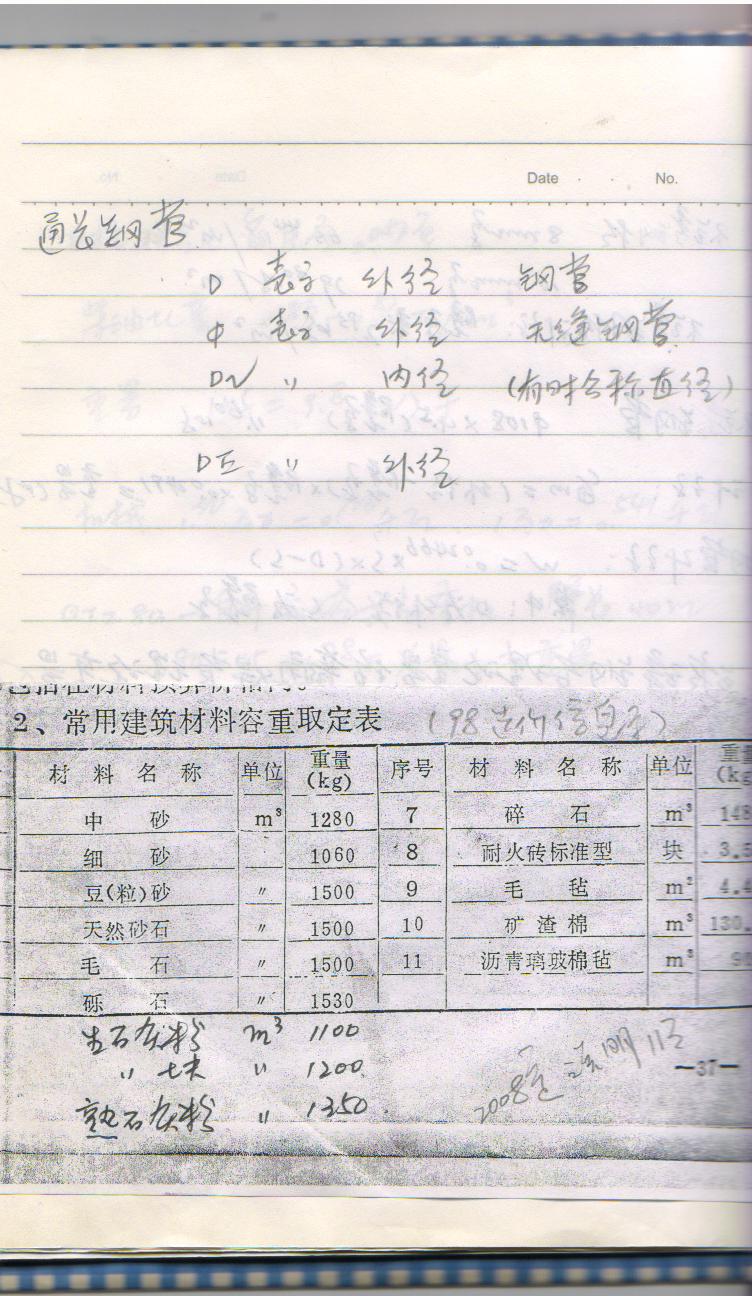 Date No.
通长钢管
D 表示 外径 钢管
Φ 表示 外径 无缝钢管
DN 〃 内径 (有时公称直径)
DE 〃 外径
2、常用建筑材料容重取定表
材料名称 单位 重量(kg) 序号 材料名称 单位
中砂 m³ 1280 7 碎石 m³
细砂 1060 8 耐火砖标准型 块 3.5
豆(粒)砂 〃 1500 9 毛毡 m² 4.4
天然砂石 〃 1500 10 矿渣棉 m³ 130.
毛石 〃 1500 11 沥青璃玻棉毡 m³
砾石 〃 1530
生石灰粉 m³ 1100
〃 块 〃 1200
熟石灰粉 〃 1350
—37—